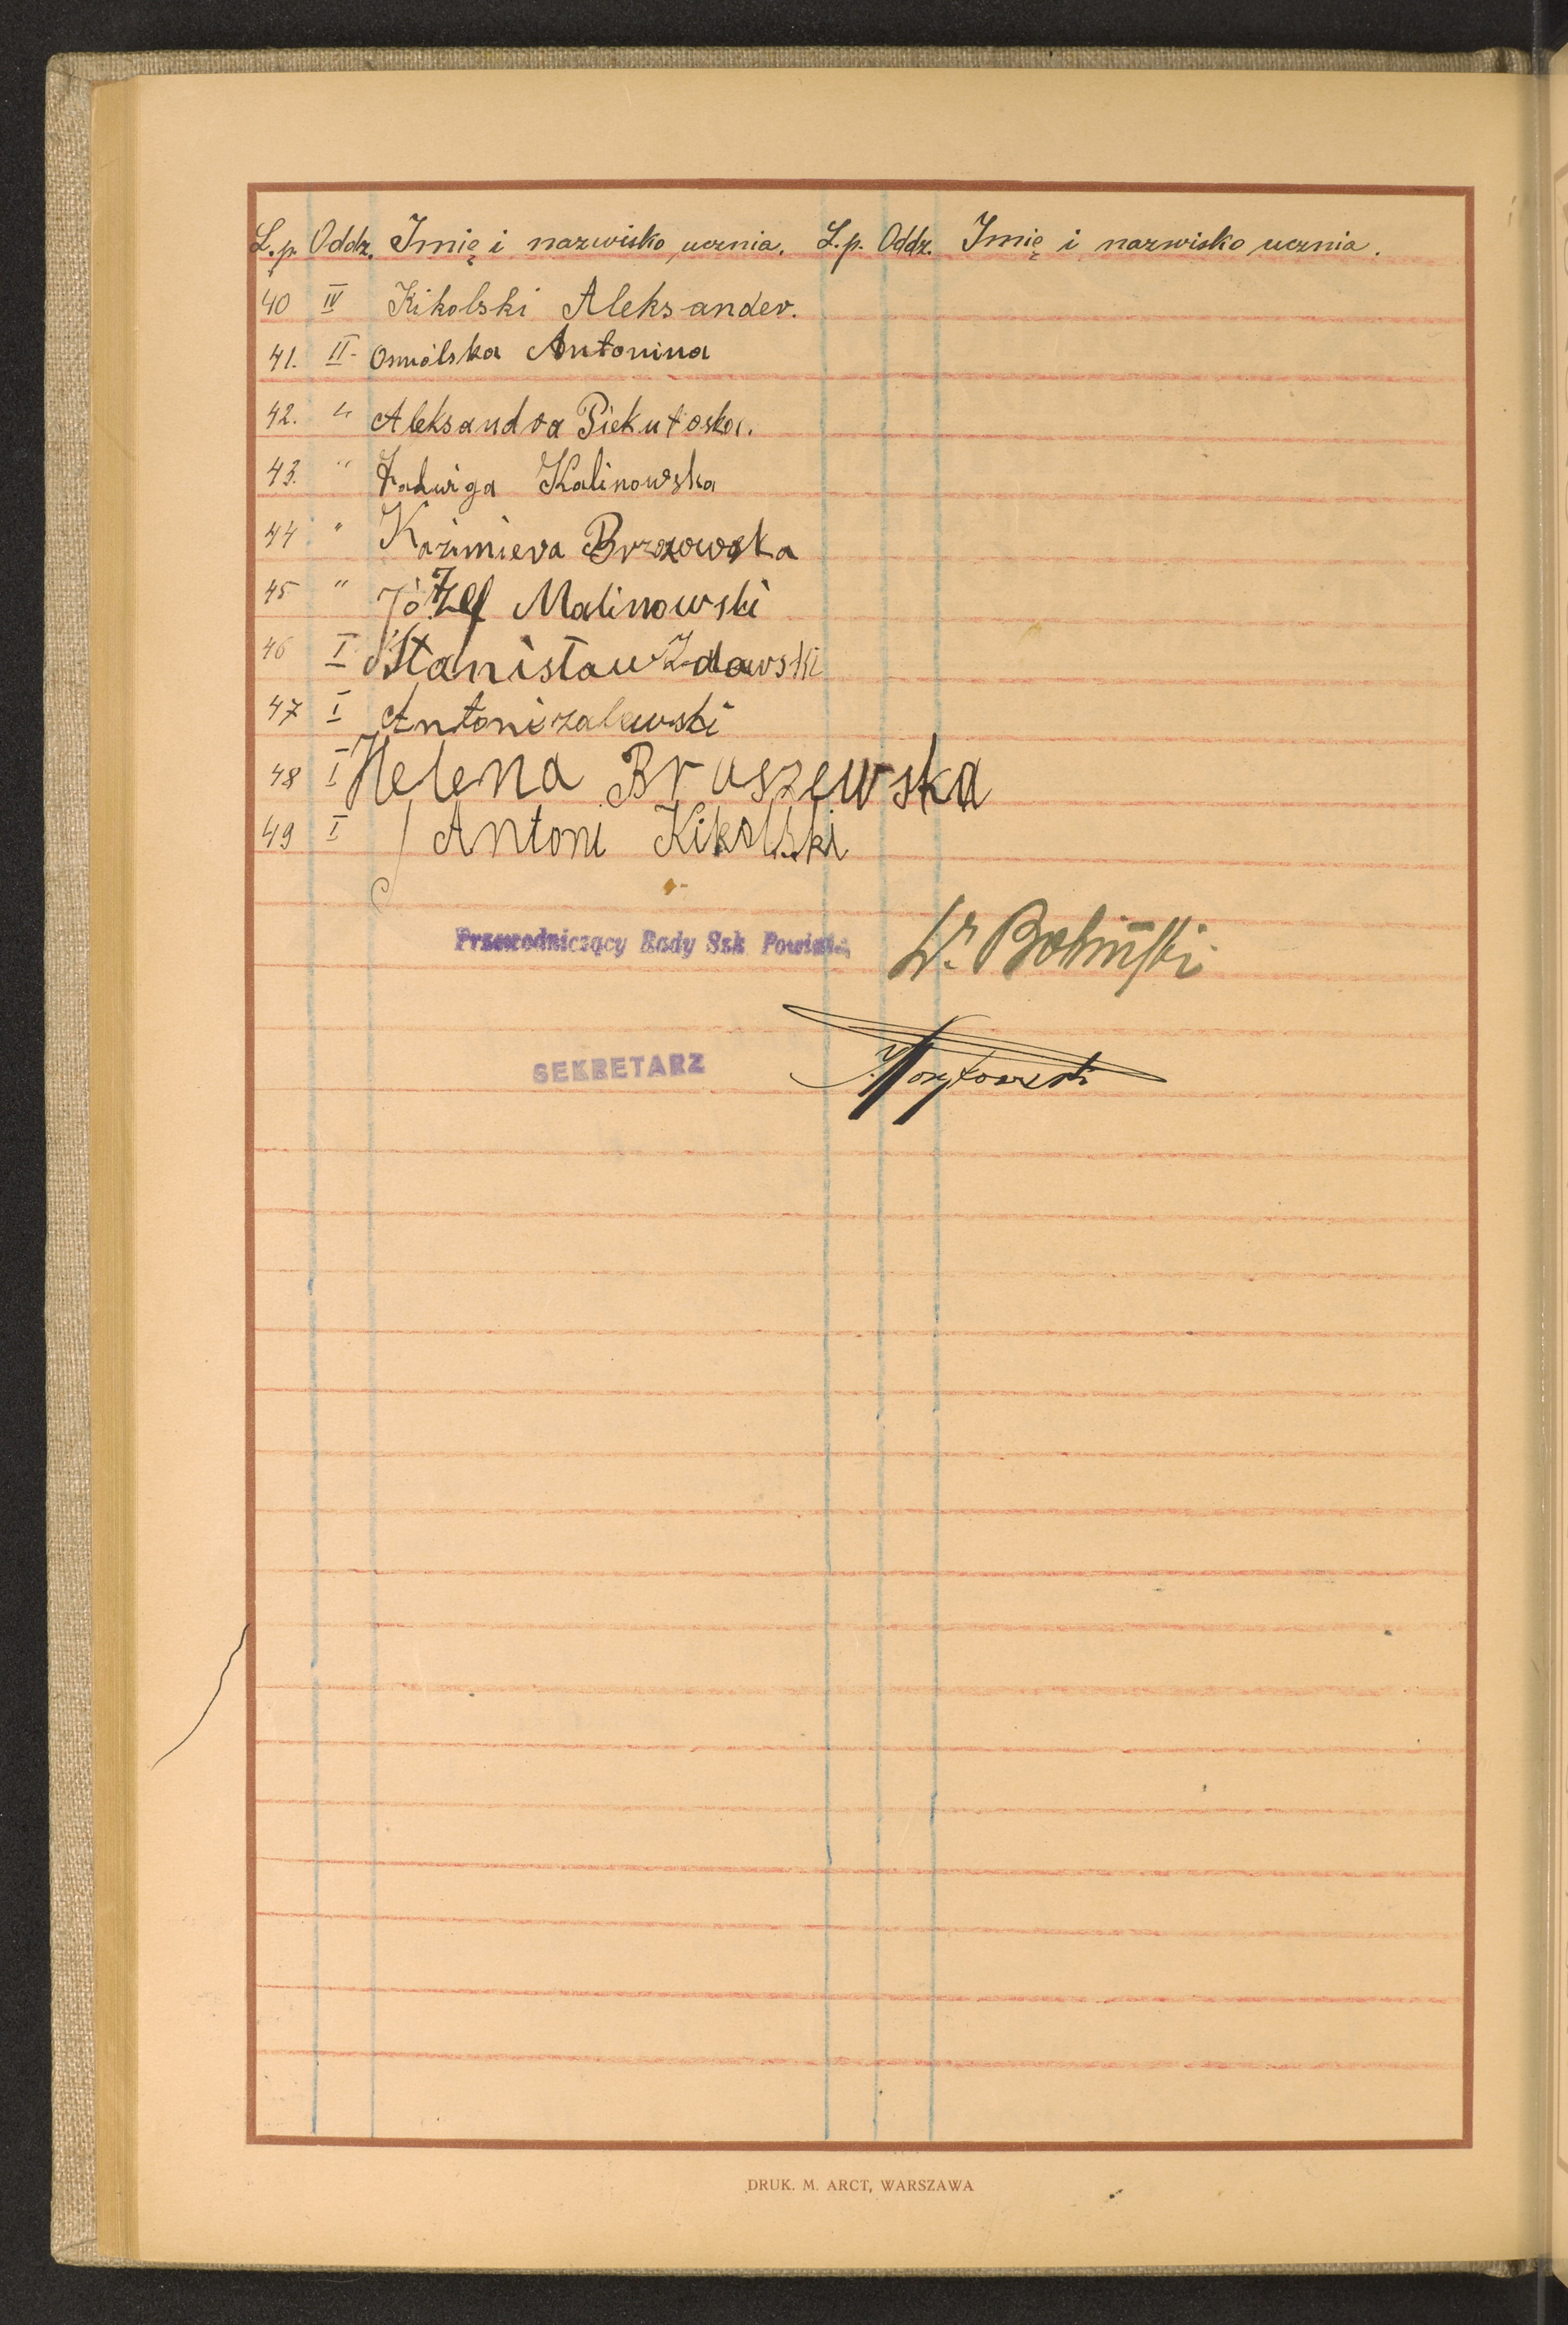 L.p. Oddz. Imię i nazwisko ucznia. L.p. Oddz. Imię i nazwisko ucznia.
40 IV Kikolski Aleksander.
41. II - Osmólska Antonina
42. " Aleksandra Piekutoska.
43. " Jadwiga Kalinowska
44 " Kazimiera Brzozowska
45 " Józef Malinowski
46 I Stanisław Zdawski
47 I Antoni zalewski
48 I Helena Bruszewska
49 I Antoni Kikolski
Przewodniczący Rady Szk Powiat.
SEKRETARZ
DRUK. M. ARCT, WARSZAWA